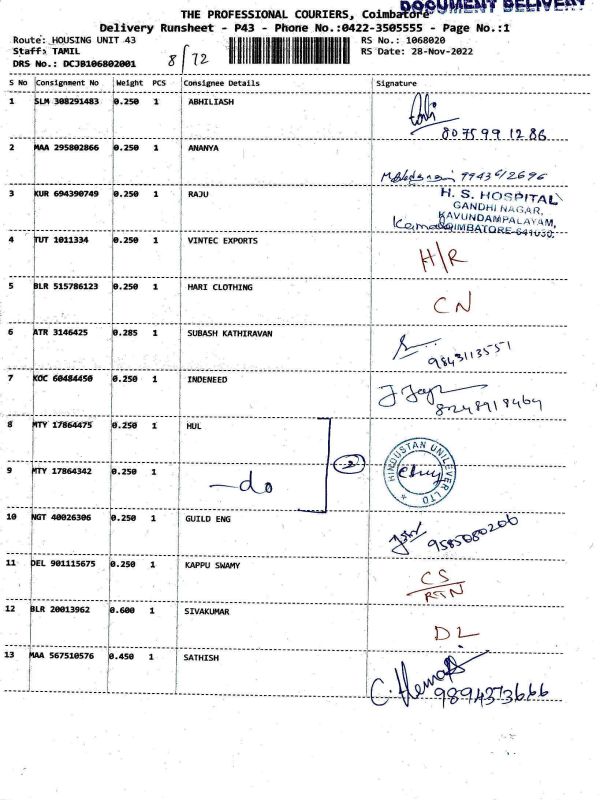 DOCUMENT DELIVERY
THE PROFESSIONAL COURIERS, Coimbatore
Delivery Runsheet - P43 - Phone No.:0422-3505555 - Page No.:1
Route: HOUSING UNIT 43 RS No.: 1068020
Staff: TAMIL RS Date: 28-Nov-2022
DRS No.: DCJB106802001 8/72
S No Consignment No Weight PCS Consignee Details Signature
1 SLM 308291483 0.250 1 ABHILIASH
8075991286
2 MAA 295802866 0.250 1 ANANYA
3 KUR 694390749 0.250 1 RAJU
H. S. HOSPITAL
GANDHI NAGAR,
KAVUNDAMPALAYAM,
COIMBATORE-641030.
4 TUT 1011334 0.250 1 VINTEC EXPORTS H/R
5 BLR 515786123 0.250 1 HARI CLOTHING CN
6 ATR 3146425 0.285 1 SUBASH KATHIRAVAN
9843113551
7 KOC 60484450 0.250 1 INDENEED
8248918464
8 MTY 17864475 0.250 1 HUL
HINDUSTAN UNILEVER LTD
9 MTY 17864342 0.250 1 —do 2
10 NGT 40026306 0.250 1 GUILD ENG
9585080206
11 DEL 901115675 0.250 1 KAPPU SWAMY CS
RTN
12 BLR 20013962 0.600 1 SIVAKUMAR DL
13 MAA 567510576 0.450 1 SATHISH
9894373666